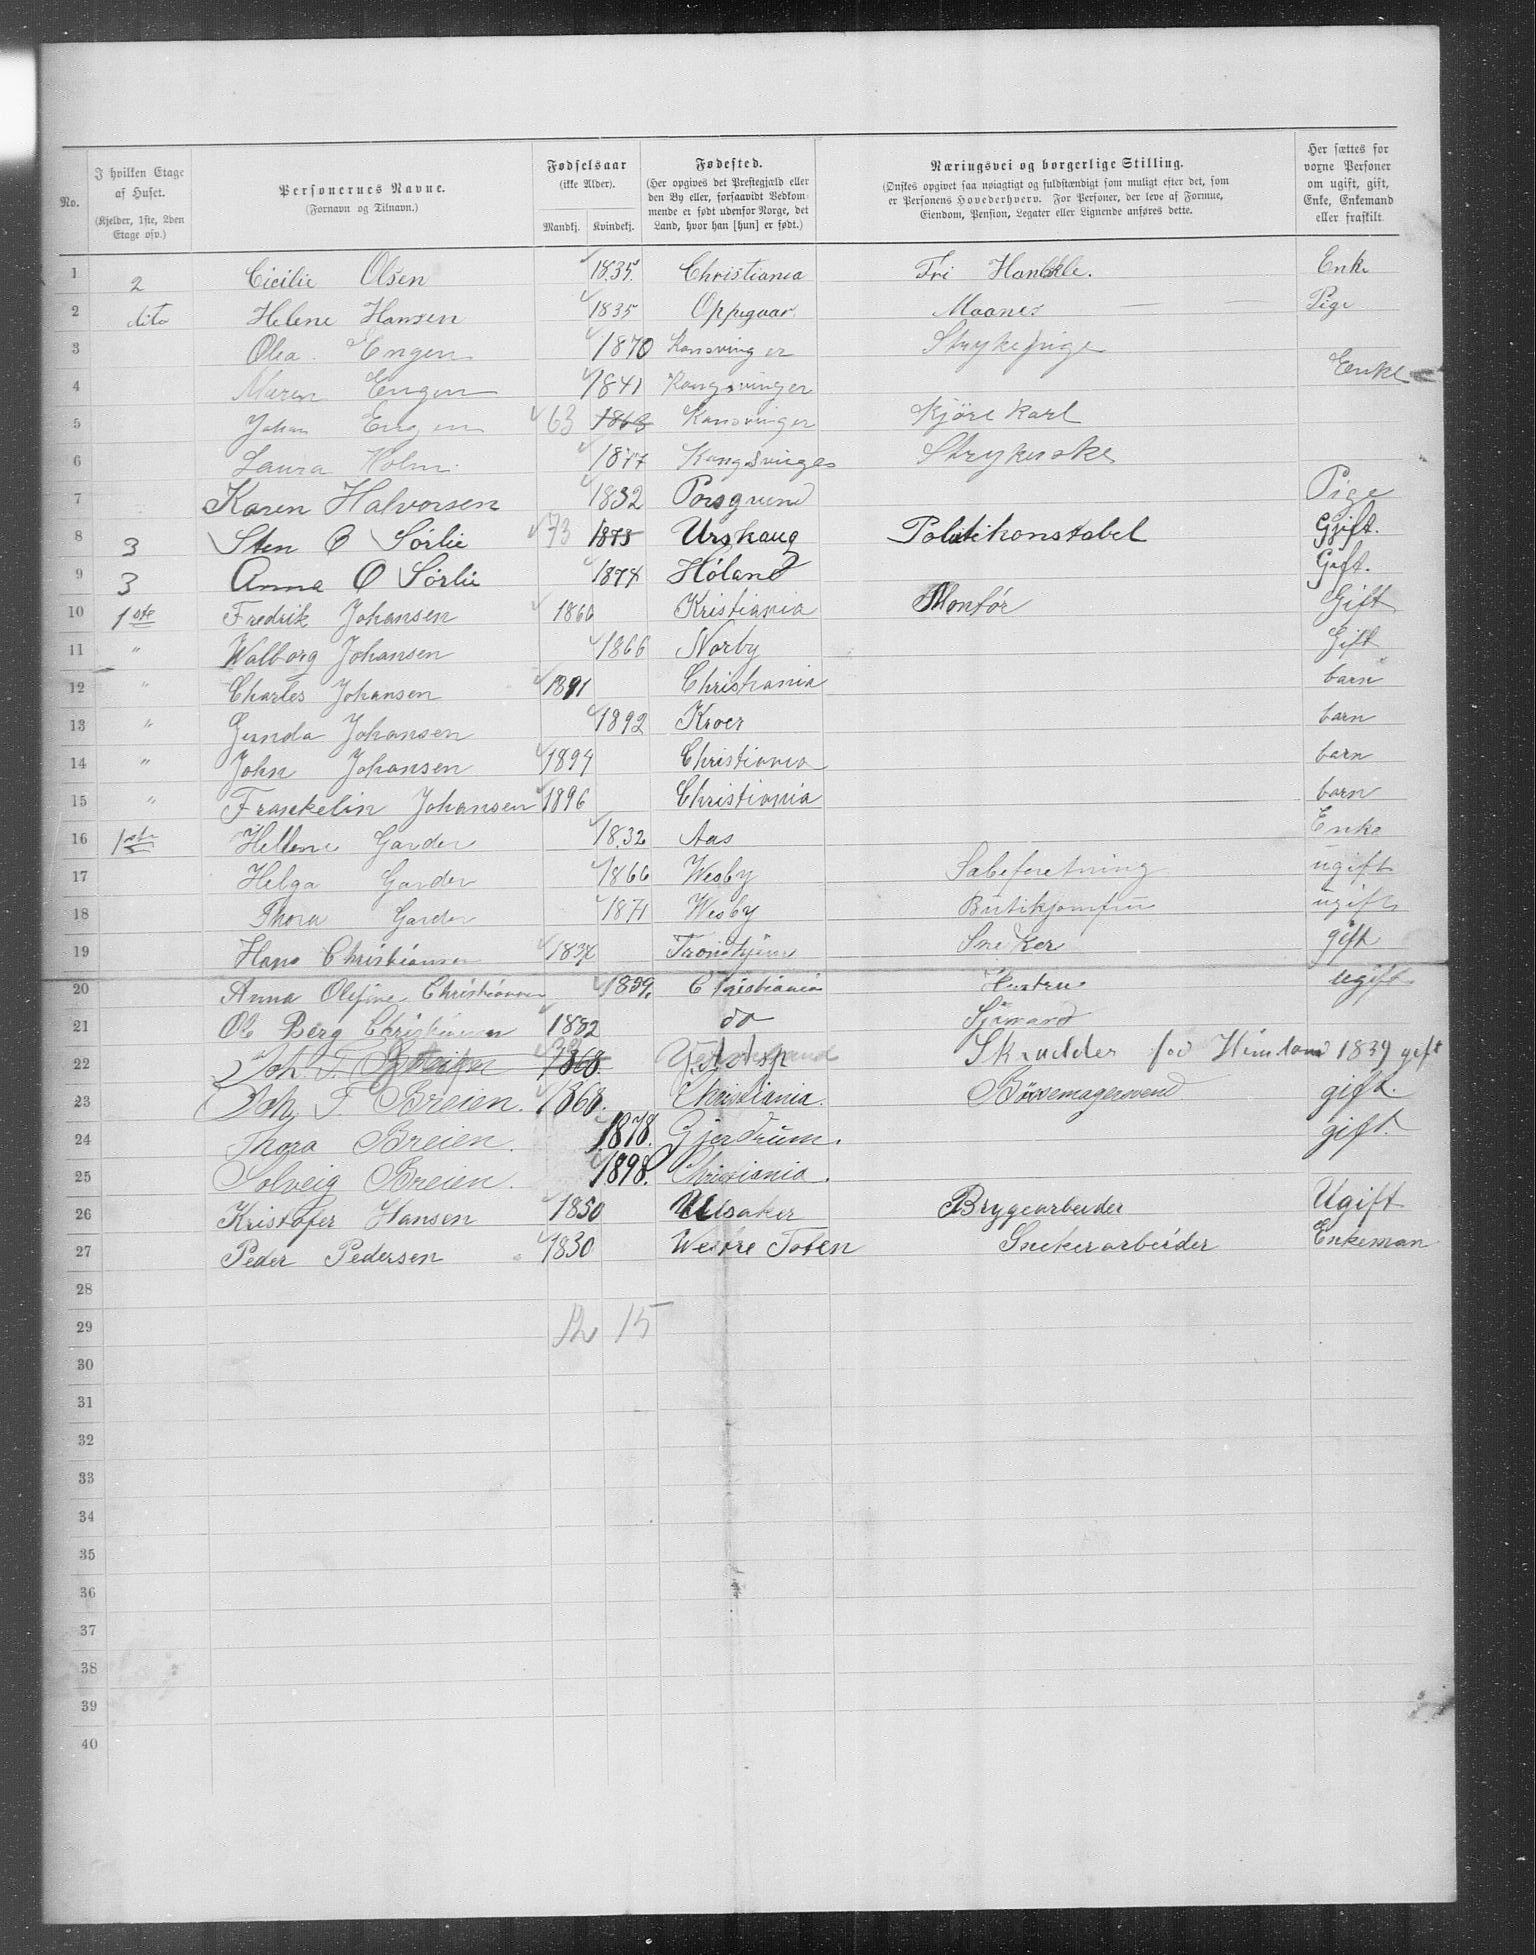 No. I hvilken Etage af Huset. (Kjelder, 1ste, 2den Etage osv.) Personernes Navne. (Fornavn og Tilnavn.) Fødselsaar (ikke Alder). Mandkj. Kvindekj. Fødested. (Her opgives det Prestegjæld eller den By eller, forsaavidt Vedkommende er født udenfor Norge, det Land, hvor han [hun] er født.) Næringsvei og borgerlige Stilling. (Ønskes opgivet saa nøiagtigt og fuldstændigt som muligt efter det, som er Personens Hovederhverv. For Personer, der leve af Formue, Eiendom, Pension, Legater eller Lignende anføres dette.) Her sættes for voxne Personer om ugift, gift, Enke, Enkemand eller fraskilt
1 2 Cicilie Olsen 1835 Christiania Fri Enke
2 dito Helene Hansen 1835 Oppegaar Pige
3 Olea Engen 1870 Konsvinger Strykepige
4 Maren Engen 1841 Kongsvinger Eenke
5 Johan Engen 63 1863 Konsvinger Kjøre Karl
6 Laura Holm 1877 Kongsvinger Strykerske
7 Karen Halvorsen 1832 Porsgrund Pige
8 3 Sten O Sörlie 73 1873 Urskaug Politikonstabel Gift.
9 3 Anna O Sörlie 1874 Höland Gift.
10 1ste Fredrik Johansen 1866 Kristiania Montör Gift
11 " Walborg Johansen 1866 Norby Gift
12 " Charles Johansen 1891 Christiania barn
13 " Gunda Johansen 1892 Kroer barn
14 " John Johansen 1894 Christiania barn
15 " Frankelin Johansen 1896 Christiania barn
16 1ste Hellene Garder 1832 Aas Enke
17 Helga Garder 1866 Wesby Sabeforetning ugift
18 Thora Garder 1871 Wesby Butikjomfru ugift
19 Hans Christiansen 1837 Trondhjem Sneker gift
20 Anna Olefine Christiansen 1859. Christiania Hustru ugift
21 Ole Berg Christiansen 1882 do Sjömand
22 Joh. F. 1868. Skrædder fød 1839 gift
23 Joh. F. Breien. 1868. Christiania. Börsemagersvend gift.
24 Thora Breien. 1878. Gjerdrum. gift.
25 Solveig Breien. 1898. Christiania.
26 Kristofer Hansen 1850 Ulsaker Bryggearbeider Ugift
27 Peder Pedersen 1830 Westre Toten Snekerarbeider Enkeman
28
29 12 15
30
31
32
33
34
35
36
37
38
39
40